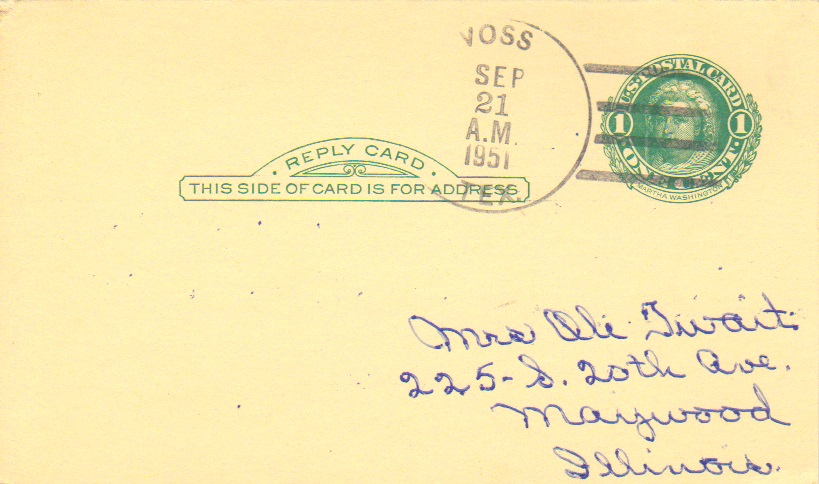 VOSS
SEP
21
A.M.
1951
TEX.
U.S. POSTAL CARD
1 1
ONE CENT
MARTHA WASHINGTON
REPLY CARD
THIS SIDE OF CARD IS FOR ADDRESS
Mrs Ole Twait
225-S. 20th Ave.
Maywood
Illinois.